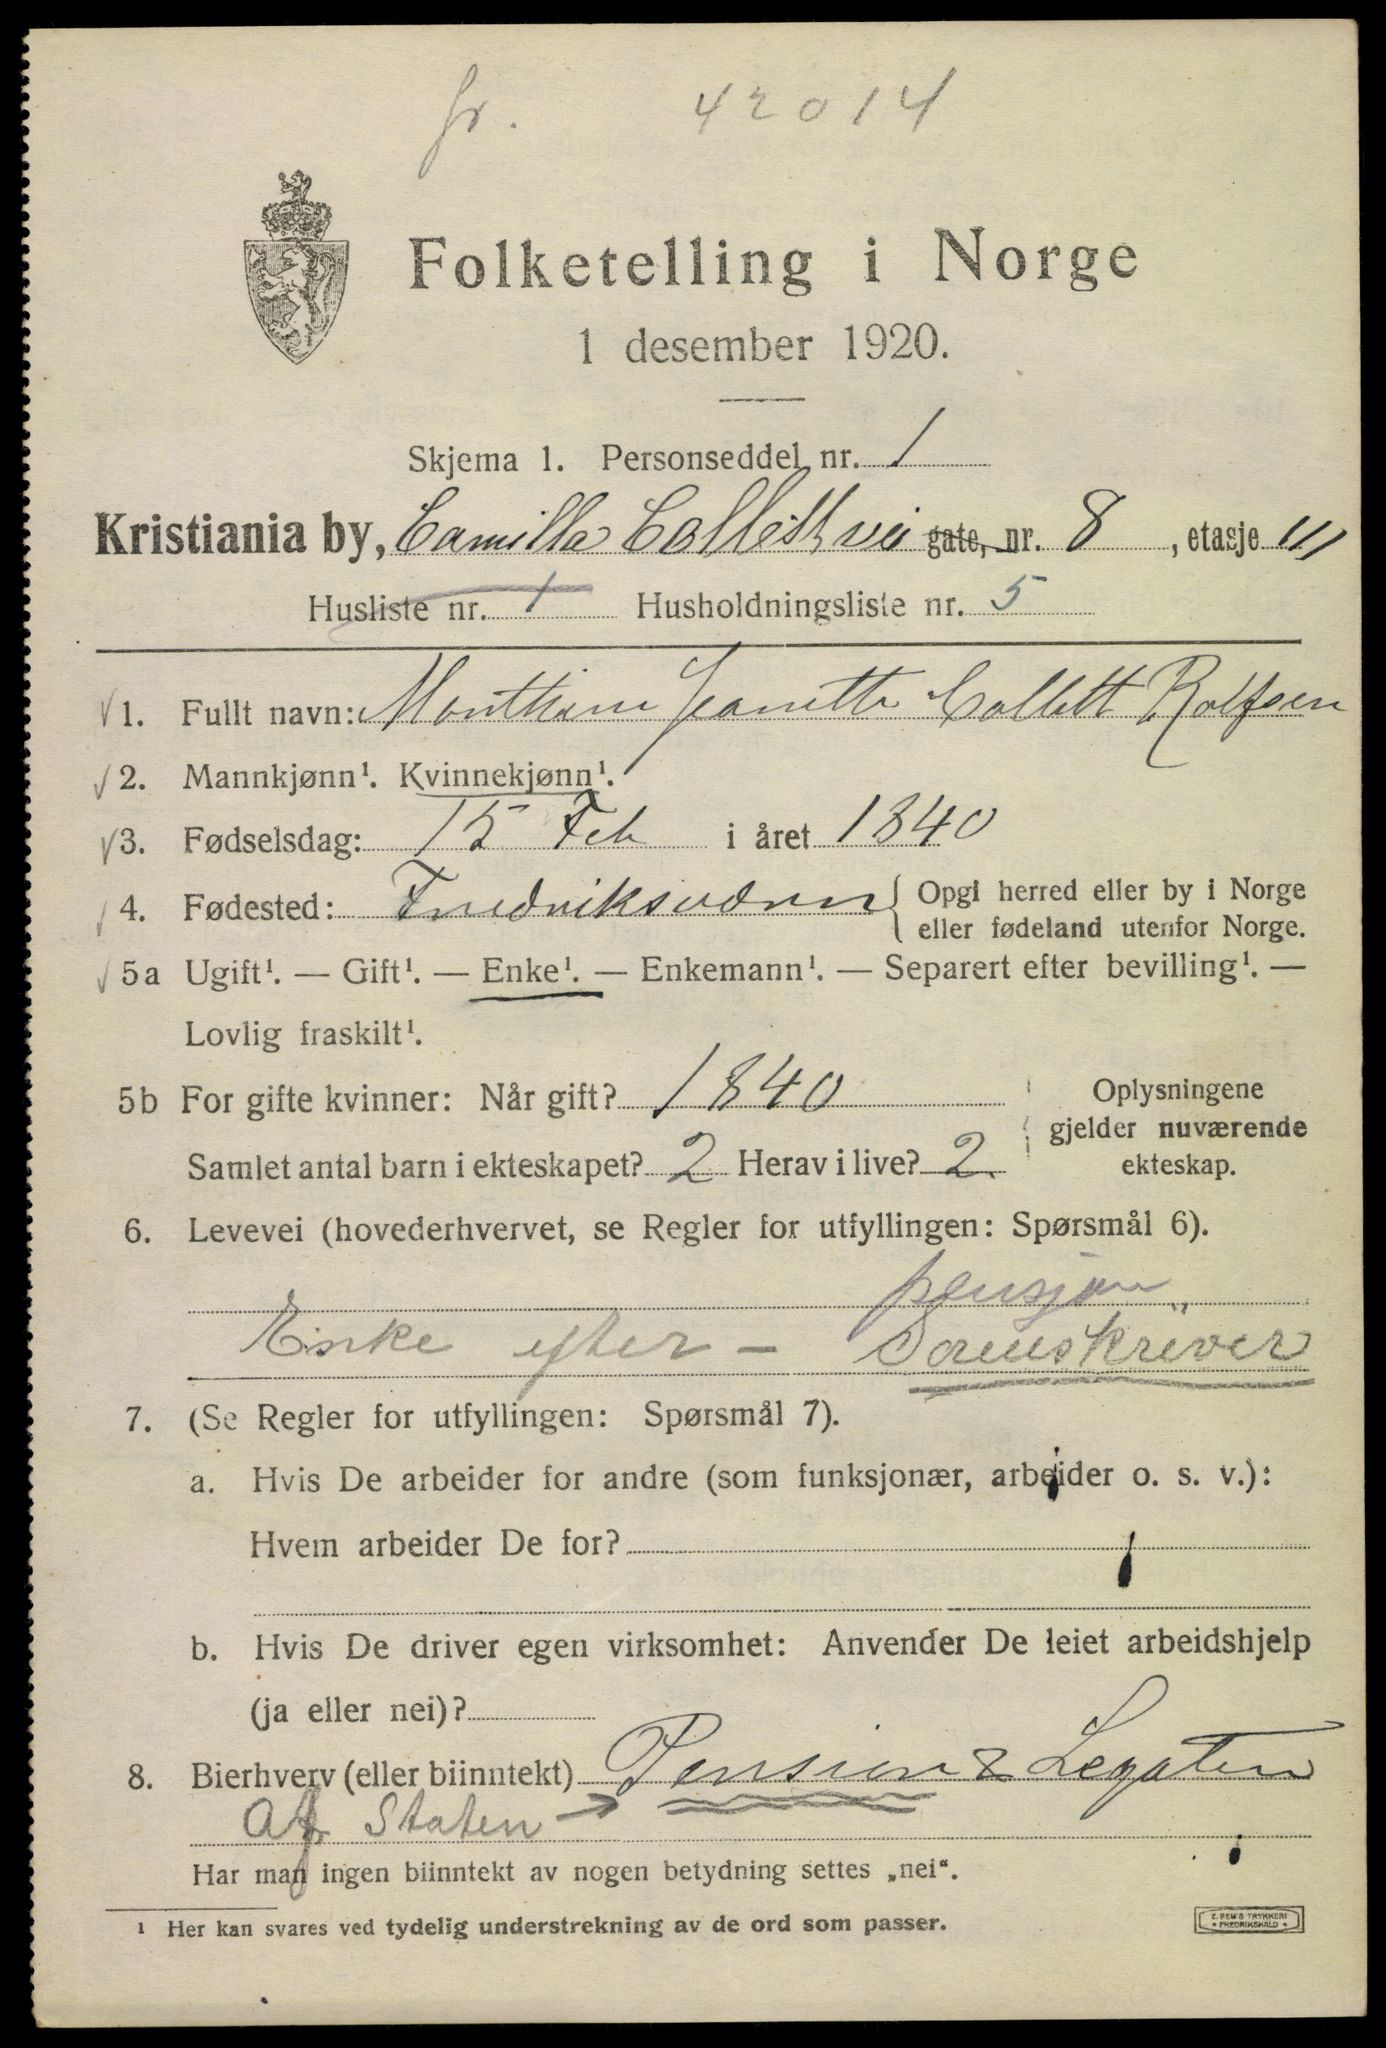 fr. 42014
Folketelling i Norge
1 desember 1920.
Skjema 1. Personseddel nr. 1
Kristiania by, Camilla Collett vei gate, nr. 8, etasje III
Husliste nr. 1 Husholdningsliste nr. 5
1. Fullt navn: Jeanette Collett Rolfsen
2. Mannkjønn¹. Kvinnekjønn¹.
3. Fødselsdag: 15 Feb i året 1840
4. Fødested: Fredriksværn { Opgi herred eller by i Norge
eller fødeland utenfor Norge.
5a Ugift¹. — Gift¹. — Enke¹. — Enkemann¹. — Separert efter bevilling¹. —
Lovlig fraskilt¹.
5b For gifte kvinner: Når gift? 1840
Samlet antal barn i ekteskapet? 2 Herav i live? 2.
Oplysningene
gjelder nuværende
ekteskap.
6. Levevei (hovederhvervet, se Regler for utfyllingen: Spørsmål 6).
pensjon
Enke efter - Sorenskriver
7. (Se Regler for utfyllingen: Spørsmål 7).
a. Hvis De arbeider for andre (som funksjonær, arbeider o. s. v.):
Hvem arbeider De for?
b. Hvis De driver egen virksomhet: Anvender De leiet arbeidshjelp
(ja eller nei)?
8. Bierhverv (eller biinntekt) Pension & Legater
Af Staten →
Har man ingen biinntekt av nogen betydning settes „nei“.
¹ Her kan svares ved tydelig understrekning av de ord som passer.
E. SEM'S TRYKKERI
• FREDRIKSHALD •